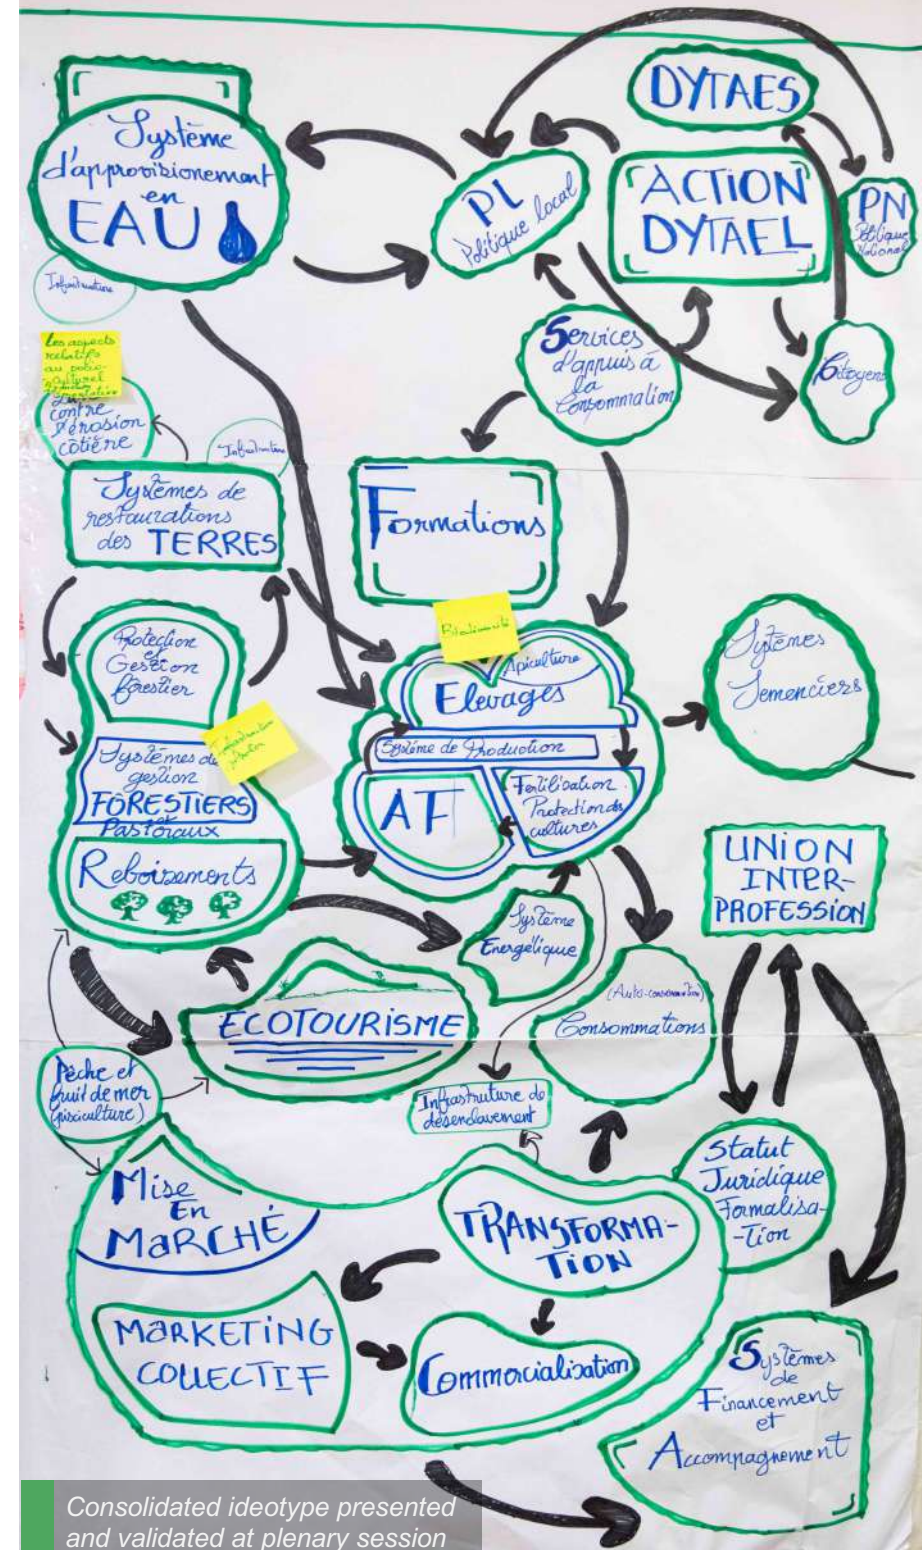 Système
d'approvisionement
en
EAU
Infrastructure
DYTAES
ACTION
DYTAEL
PL
Politique local
PN
Politique
National
Citoyens
Services
d'appuis à
la
Consommation
Les aspects
relatifs
au socio-
culturel
contre
l'érosion
côtière
Infrastructure
Systèmes de
restaurations
des TERRES
Formations
Protection
et
Gestion
forestier
Systèmes de
gestion
FORESTIERS
et
Pastoraux
Reboisements
Biodiversité
Apiculture
Elevages
Système de Production
AF
Fertilisation
Protection des
cultures
Systèmes
Semenciers
UNION
INTER-
PROFESSION
Système
Energétique
(Auto-consommation)
Consommations
ECOTOURISME
Pêche et
fruit de mer
(pisciculture)
Infrastruture de
désenclavement
Statut
Juridique
Formalisa-
-tion
Mise
En
MARCHÉ
TRANSFORMA-
TION
MARKETING
COLLECTIF
Commercialisation
Systèmes
de
Financement
et
Accompagnement
Consolidated ideotype presented
and validated at plenary session